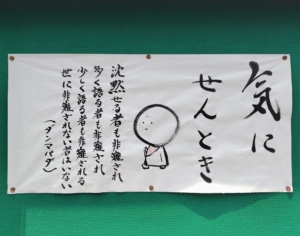 気に
せんとき
沈黙せる者も非難され
多く語る者も非難され
少し語る者も非難される
世に非難されない者はいない
(ダンマパダ)